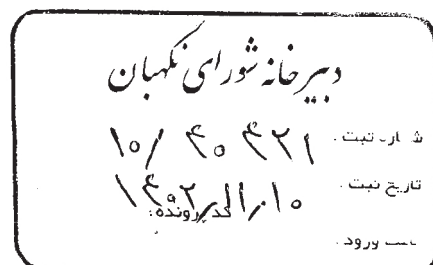 دبیرخانه شورای نگهبان
شماره ثبت . ۱۰/ ۴۰ ۴۲۱
تاریخ ثبت . ۱۴۰۲/۱۱/۱۰
کد پرونده:
ورود .